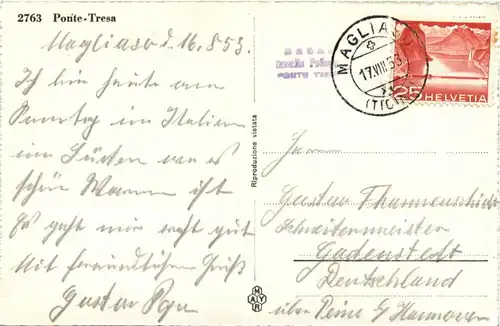 2763 Ponte-Tresa
Magliaso d. 16.8.53.
Ich bin heute am
Sonntag im Italien
im Süden wo es
schön Warm ist
Es geht mir recht gut
Mit freundlichen Gruß
Gustav
Riproduzione vietata
MAYR
PONTE TRESA
MAGLIASO
17.VIII.53
(TICINO)
25 HELVETIA
Herrn
Gustav Thannenschidt
Schneidermeister
Gadenstedt
Deutschland
über Peine b/ Hannover